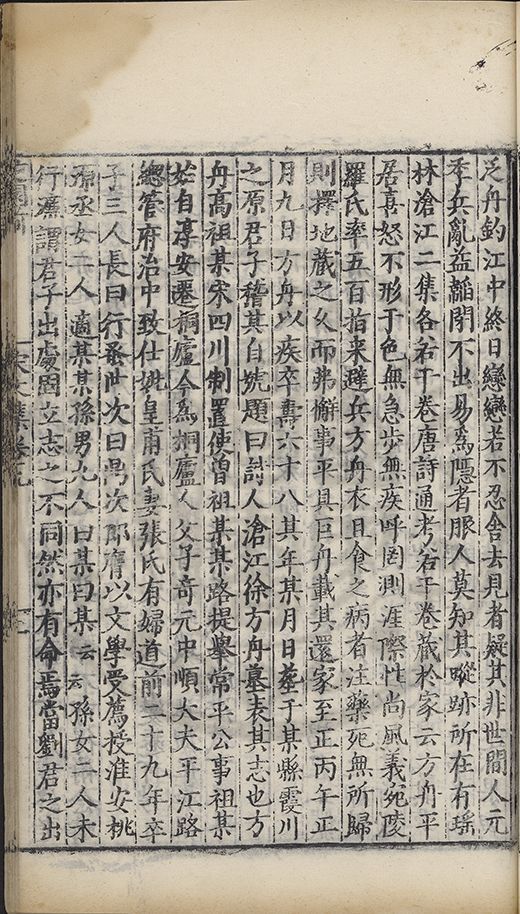 泛舟釣江中終日戀戀若不忍舍去見者疑其非世間人元
季兵亂益韜閉不出易為隱者服人莫知其蹤跡所在有瑤
林滄江二集各若干卷唐詩通考若干卷藏於家云方舟平
居喜怒不形于色無急步無疾呼罔測涯際性尚風義宛陵
羅氏率五百指来避兵方舟衣且食之病者注藥死無所歸
則擇地藏之久而弗懈事平具巨舟載其還家至正丙午正
月九日方舟以疾卒壽六十八其年某月日塟于某縣霞川
之原君子稽其自號題曰詩人滄江徐方舟墓表其志也方
舟高祖某宋四川制置使曾祖某某路提舉常平公事祖某
始自淳安遷桐廬今為桐廬人父子奇元中順大夫平江路
總管府治中致仕妣皇甫氏妻張氏有婦道前二十九年卒
子三人長曰行蚤世次曰禺次即膺以文學受薦授淮安桃
源丞女二人適某某孫男九人曰某曰某云云孫女二人未
行濂謂君子出處固立志之不同然亦有命焉當劉君之出
宋文集卷